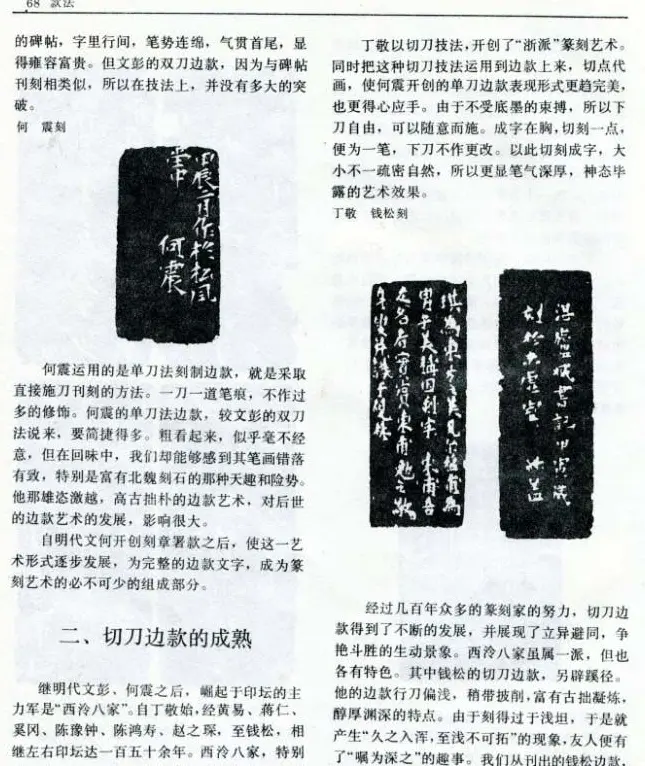 68 款法
的碑帖，字里行间，笔势连绵，气贯首尾，显
得雍容富贵。但文彭的双刀边款，因为与碑帖
刊刻相类似，所以在技法上，并没有多大的突
破。
何 震刻
壬辰二月作於松风
堂中 何震
何震运用的是单刀法刻制边款，就是采取
直接施刀刊刻的方法。一刀一道笔痕，不作过
多的修饰。何震的单刀法边款，较文彭的双刀
法说来，要简捷得多。粗看起来，似乎毫不经
意，但在回味中，我们却能够感到其笔画错落
有致，特别是富有北魏刻石的那种天趣和险势。
他那雄恣激越，高古拙朴的边款艺术，对后世
的边款艺术的发展，影响很大。
自明代文何开创刻章署款之后，使这一艺
术形式逐步发展，为完整的边款文字，成为篆
刻艺术的必不可少的组成部分。
二、切刀边款的成熟
继明代文彭、何震之后，崛起于印坛的主
力军是“西泠八家”。自丁敬始，经黄易、蒋仁、
奚冈、陈豫钟、陈鸿寿、赵之琛，至钱松，相
继左右印坛达一百五十余年。西泠八家，特别
丁敬以切刀技法，开创了“浙派”篆刻艺术。
同时把这种切刀技法运用到边款上来，切点代
画，使何震开创的单刀边款表现形式更趋完美，
也更得心应手。由于不受底墨的束搏，所以下
刀自由，可以随意而施。成字在胸，切刻一点，
便为一笔，下刀不作更改。以此切刻成字，大
小不一疏密自然，所以更显笔气深厚，神态毕
露的艺术效果。
丁敬 钱松刻
经过几百年众多的篆刻家的努力，切刀边
款得到了不断的发展，并展现了立异避同，争
艳斗胜的生动景象。西泠八家虽属一派，但也
各有特色。其中钱松的切刀边款，另辟蹊径。
他的边款行刀偏浅，稍带披削，富有古拙凝炼，
醇厚渊深的特点。由于刻得过于浅坦，于是就
产生“久之入浑，至浅不可拓”的现象，友人便有
了“嘱为深之”的趣事。我们从刊出的钱松边款，